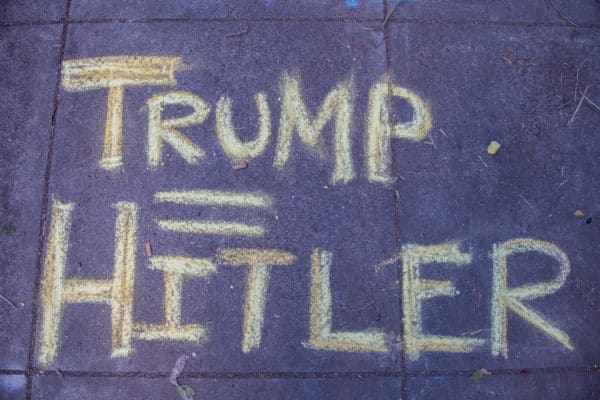 TRUMP
=
HITLER